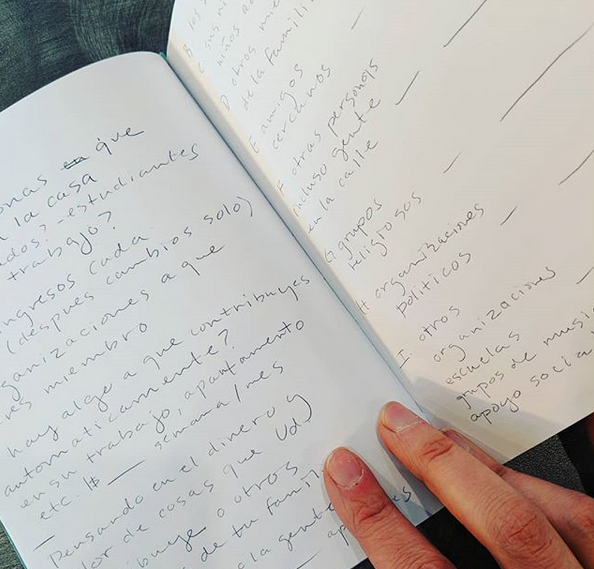 que
a la casa
estudiantes
trabajo?
ingresos cada
(despues cambios solo)
organizaciones a que
res miembro
hay algo a que contribuyes
automaticamente?
en su trabajo, apartamento
etc. # __ semana/mes
Pensando en el dinero y
lor de cosas que Ud)
ibuye o otros
s de tu famil
la gente
ap
niños
D otros
de la famili
E amigos
cercanos
F otras personas
incluso gente
en la calle
G grupos
religiosos
H organizaciones
politicos
I otros
organizaciones
escuelas
grupos de musi
apoyo socia